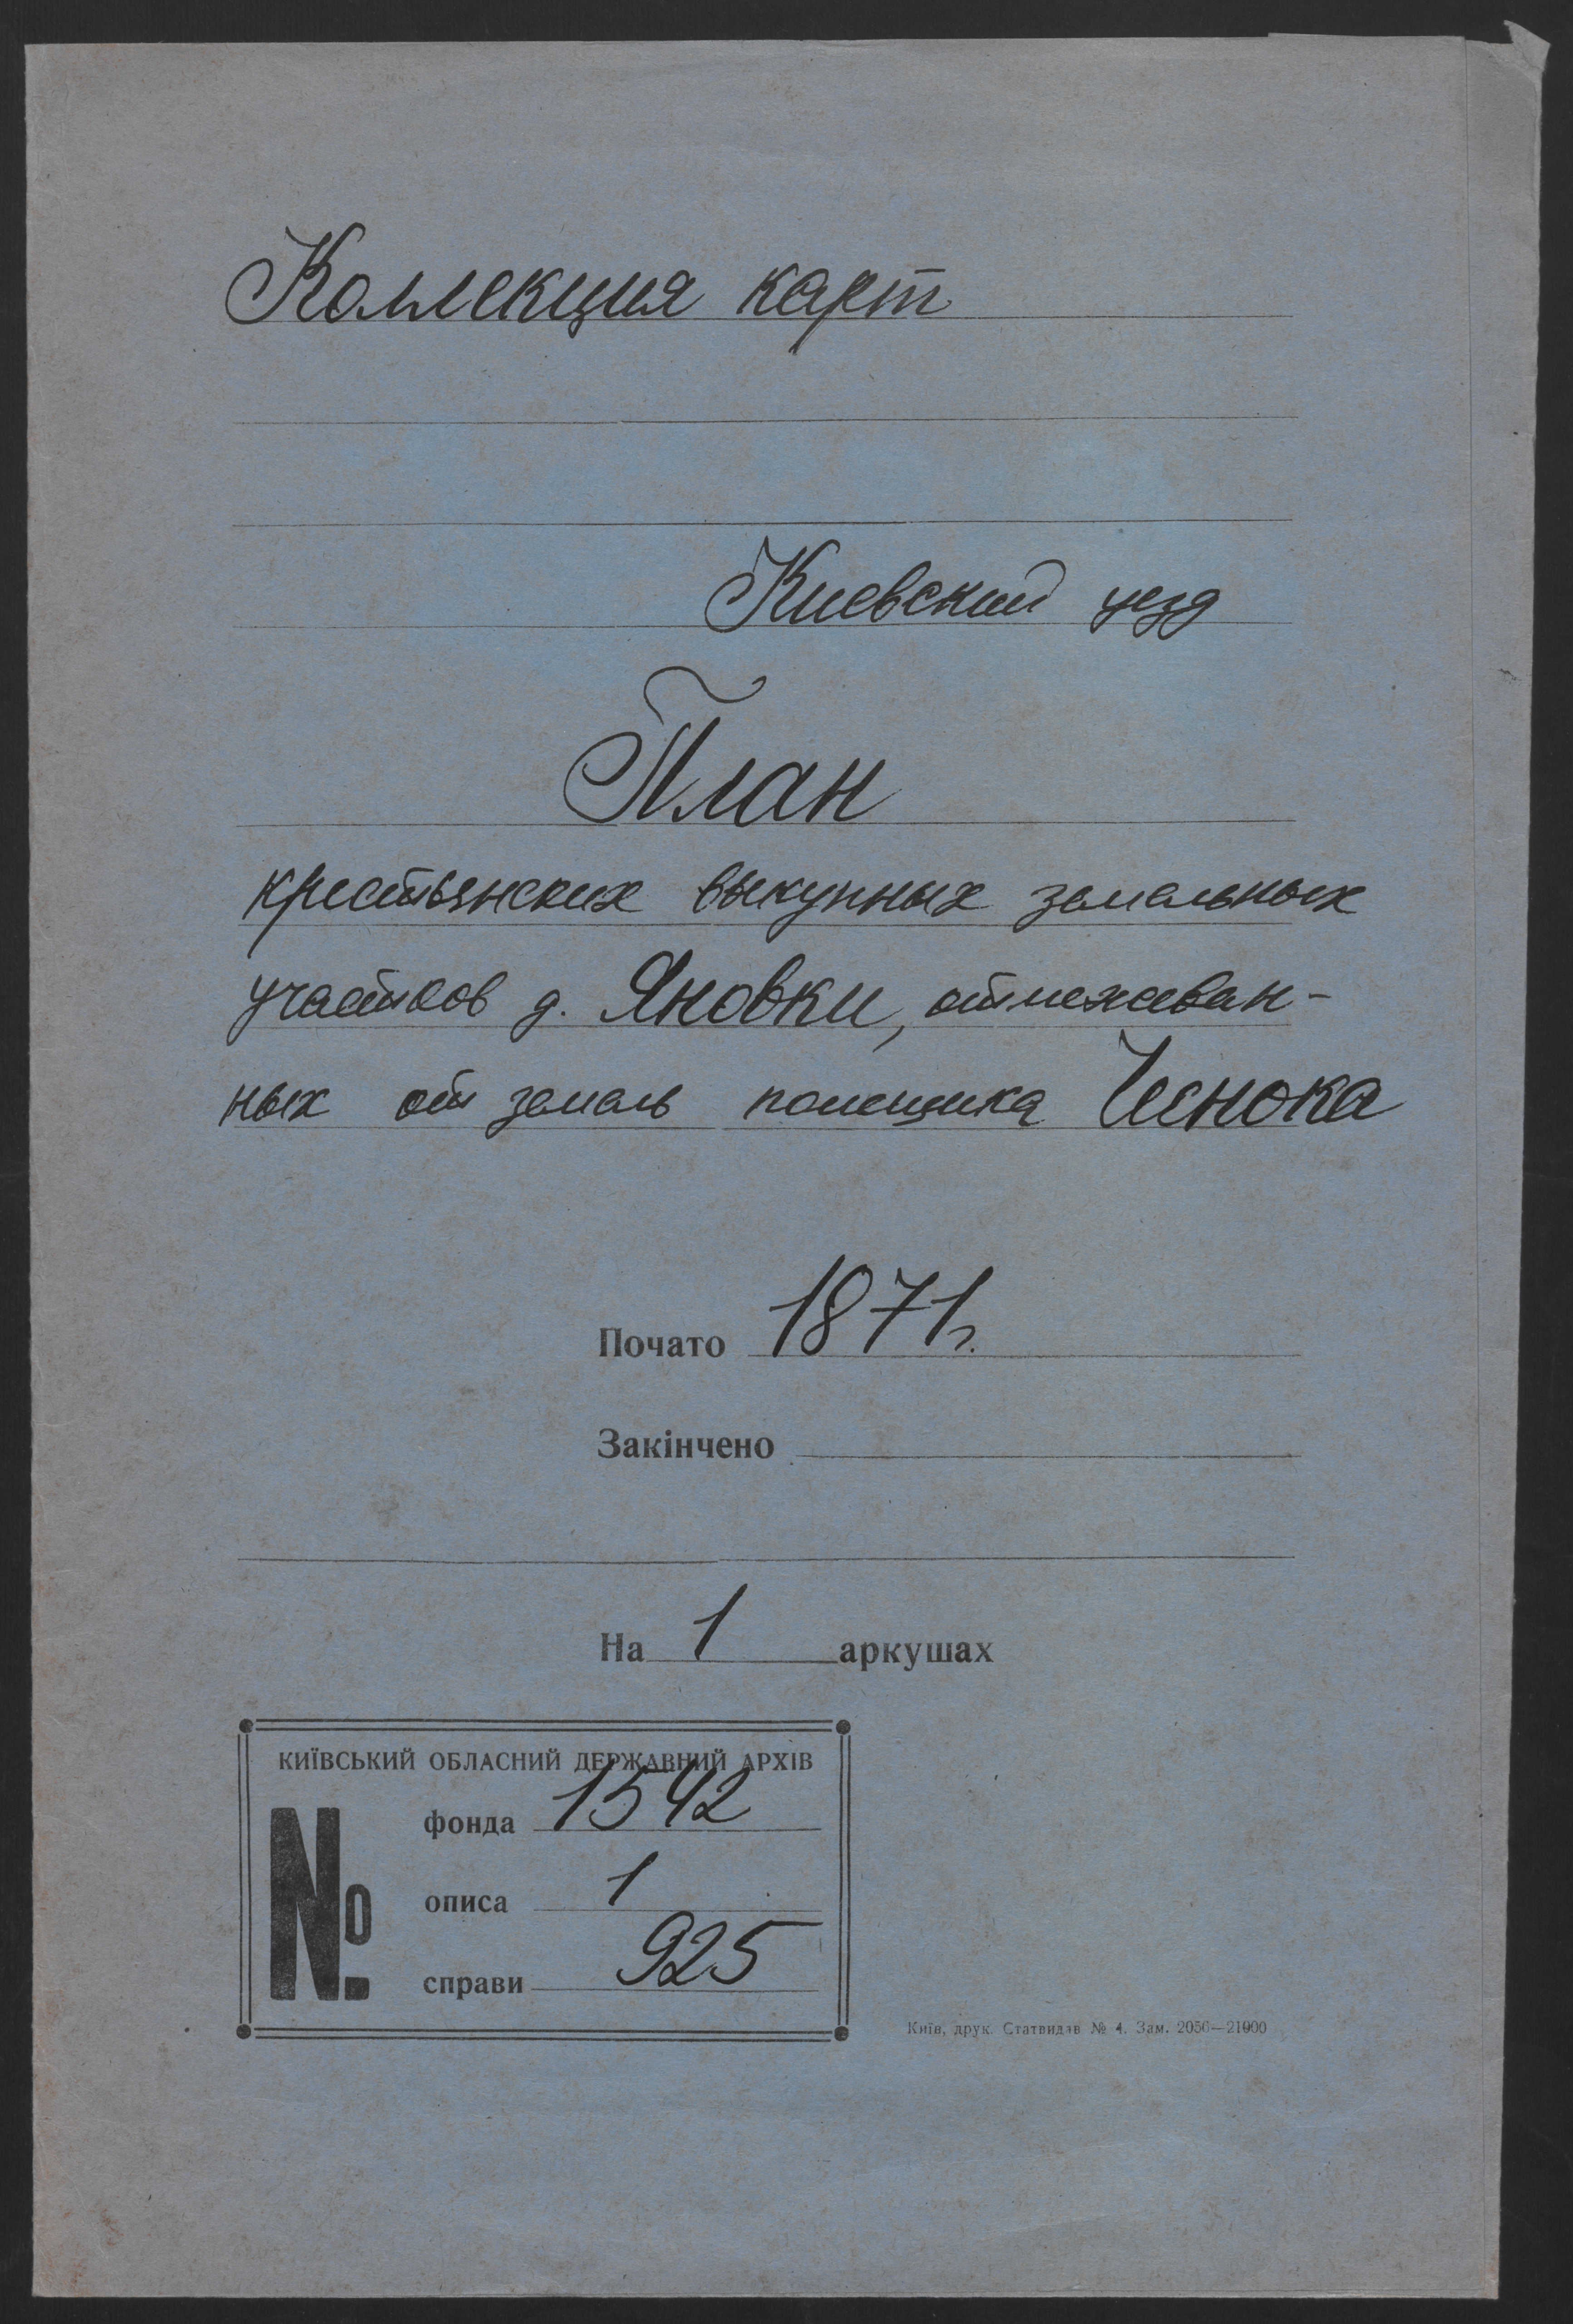 Коллекция карт
Киевский уезд
План
крестьянских выкупных земельных
участков д. Яновки, отмежеван-
ных от земель помещика Чеснока
Почато 1871 г.
Закінчено
На 1 аркушах
КИЇВСЬКИЙ ОБЛАСНИЙ ДЕРЖАВНИЙ АРХІВ
№
фонда 1542
описа 1
справи 925
Київ, друк. Статвидав № 4. Зам. 2050—21000